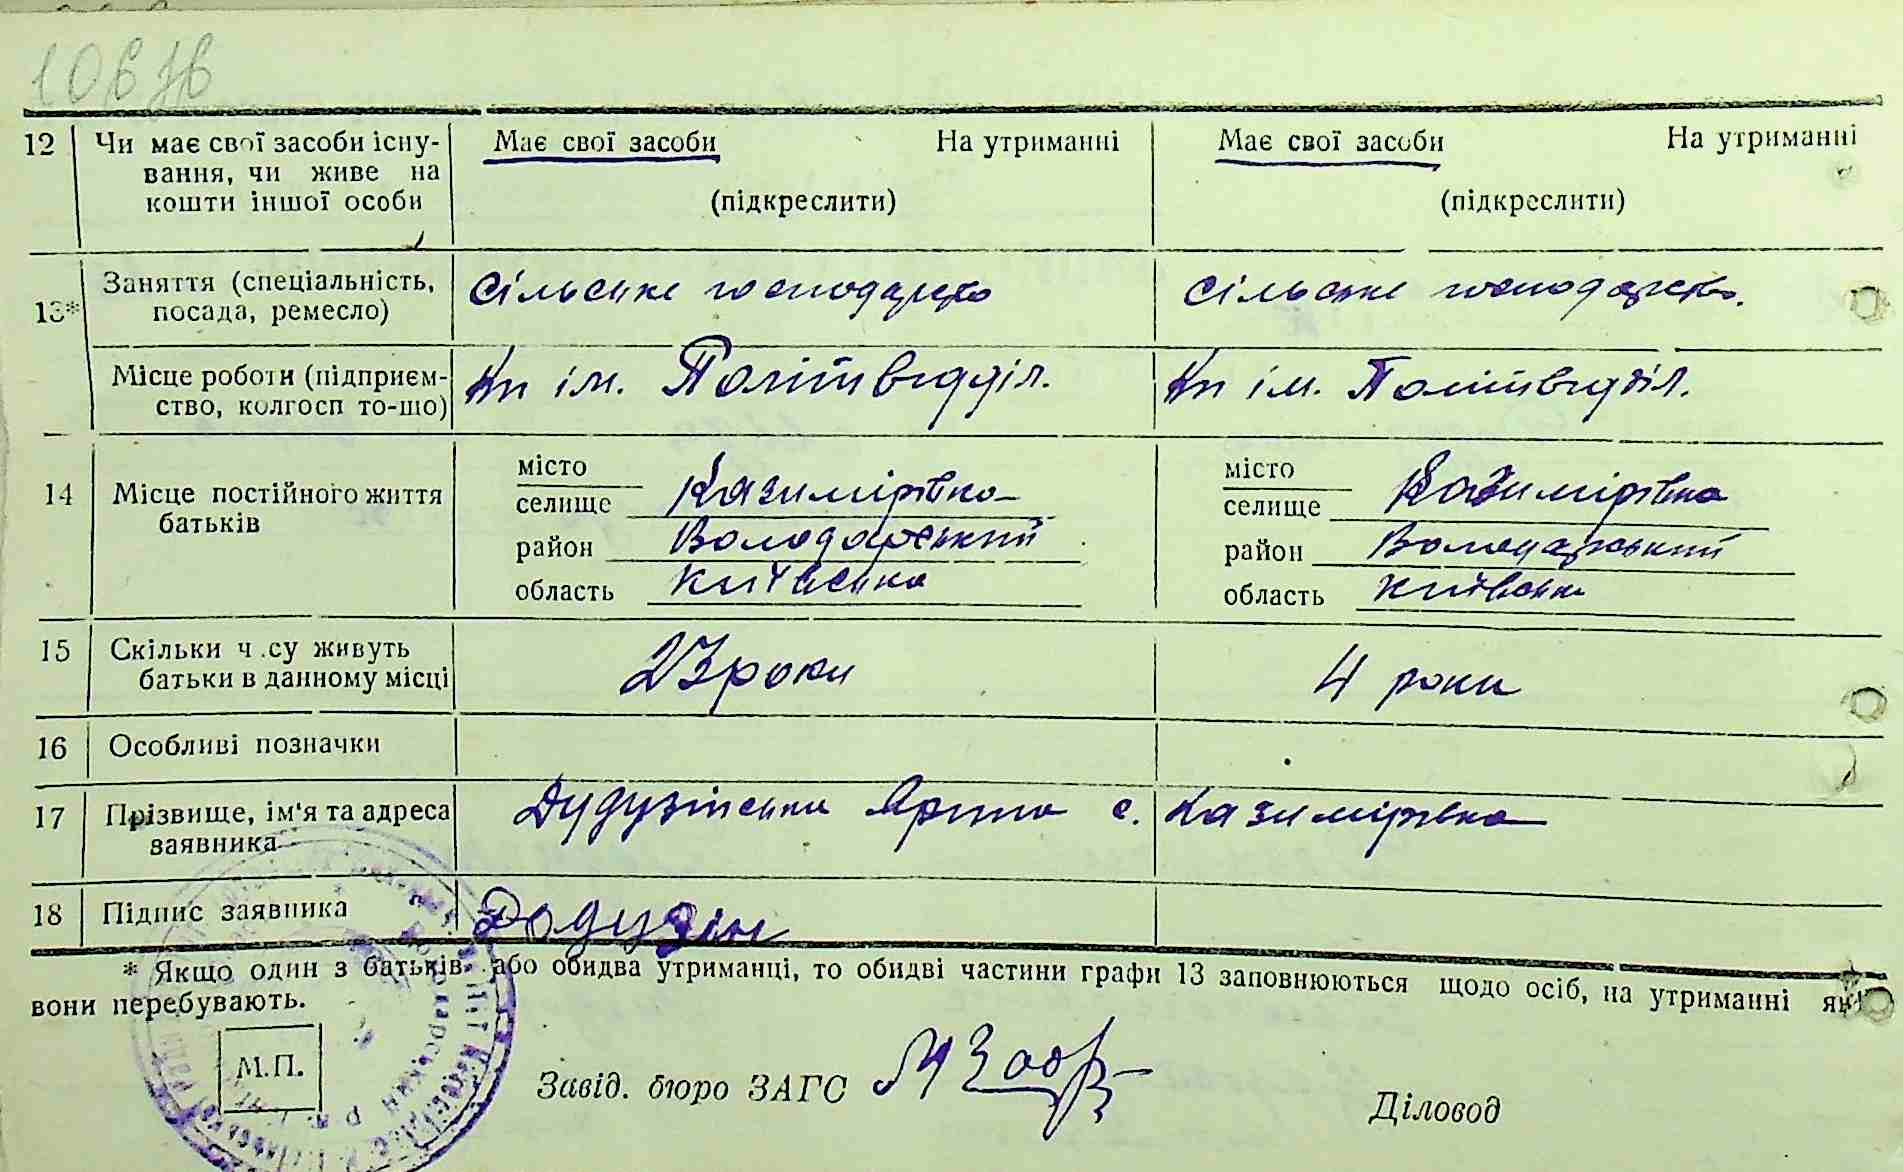 12 Чи має свої засоби існу-
вання, чи живе на
кошти іншої особи
Має свої засоби На утриманні
(підкреслити)
Має свої засоби На утриманні
(підкреслити)
13* Заняття (спеціальність,
посада, ремесло)
Сільське господарство
Сільське господарство.
Місце роботи (підприєм-
ство, колгосп то-що)
ім. Політвідділ.
ім. Політвідділ.
14 Місце постійного життя
батьків
місто
селище Казимірівка
район Володарський
область Київська
місто
селище Казимірівка
район Володарський
область Київська
15 Скільки ч.су живуть
батьки в данному місці
23 роки
4 роки
16 Особливі позначки
17 Прізвище, ім'я та адреса
заявника
Ярина с. Казимірівка
18 Підпис заявника
* Якщо один з батьків або обидва утриманці, то обидві частини графи 13 заповнюються щодо осіб, на утриманні як
вони перебувають.
М.П.
Завід. бюро ЗАГС
Діловод